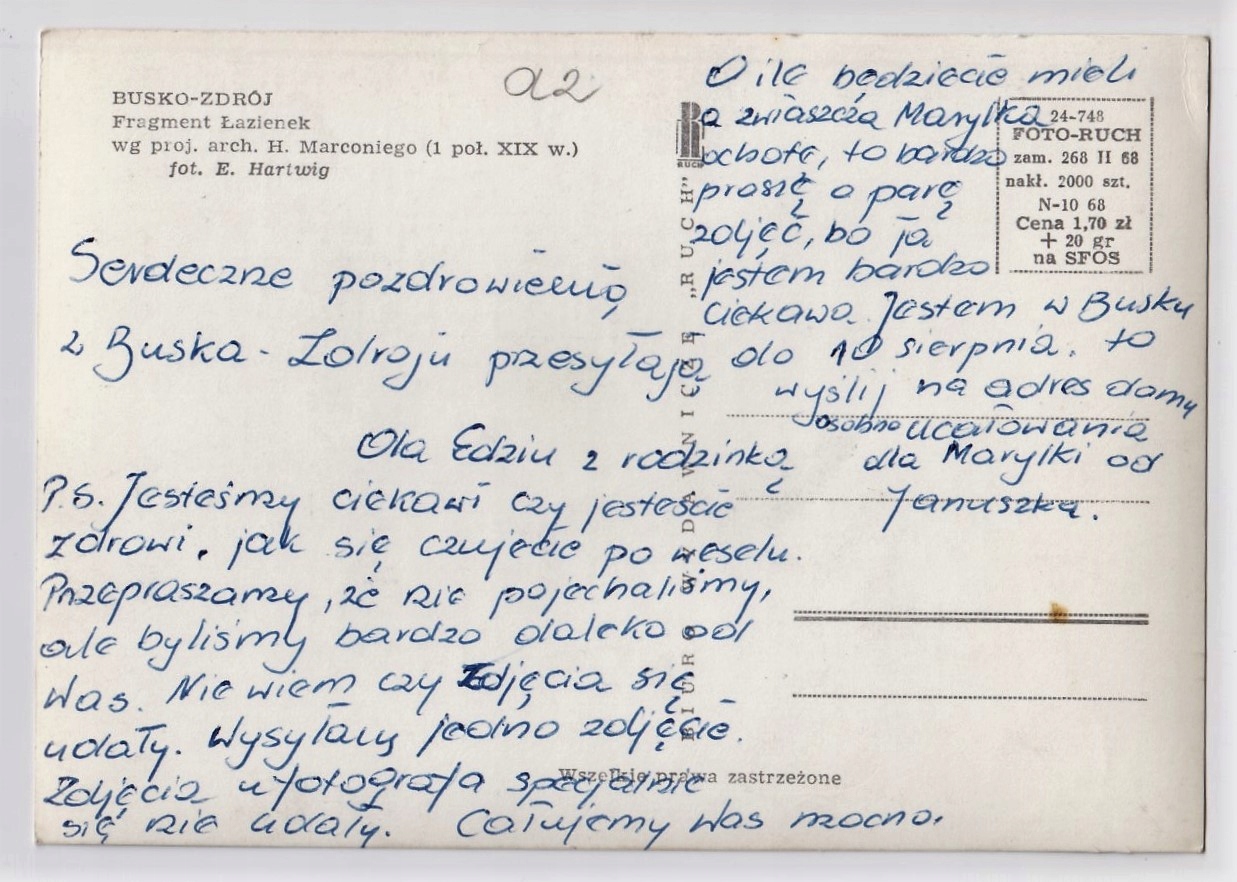 BUSKO-ZDRÓJ
Fragment Łazienek
wg proj. arch. H. Marconiego (1 poł. XIX w.)
fot. E. Hartwig
a2
Serdeczne pozdrowienia
z Buska - Zdroju przesyłają
Ola Edziu z rodzinką
P.S. Jesteśmy ciekawi czy jesteście
zdrowi, jak się czujecie po weselu.
Przepraszamy, że nie pojechaliśmy,
ale byliśmy bardzo daleko od
Was. Nie wiem czy Zdjęcia się
udały. Wysyłamy jedno zdjęcie.
Zdjęcia u fotografa specjalnie
się nie udały. Całujemy Was mocno.
O ile będziecie mieli
a zwłaszcza Marylka
ochotę, to bardzo
proszę o parę
zdjęć, bo ja
jestem bardzo
ciekawa. Jestem w Busku
do 10 sierpnia, to
wyślij na adres domu
osobno ucałowania
dla Marylki od
Januszka.
RUCH
BIURO WYDAWNICZE „RUCH”
24-748
FOTO-RUCH
zam. 268 II 68
nakł. 2000 szt.
N-10 68
Cena 1,70 zł
+ 20 gr
na SFOS
Wszelkie prawa zastrzeżone